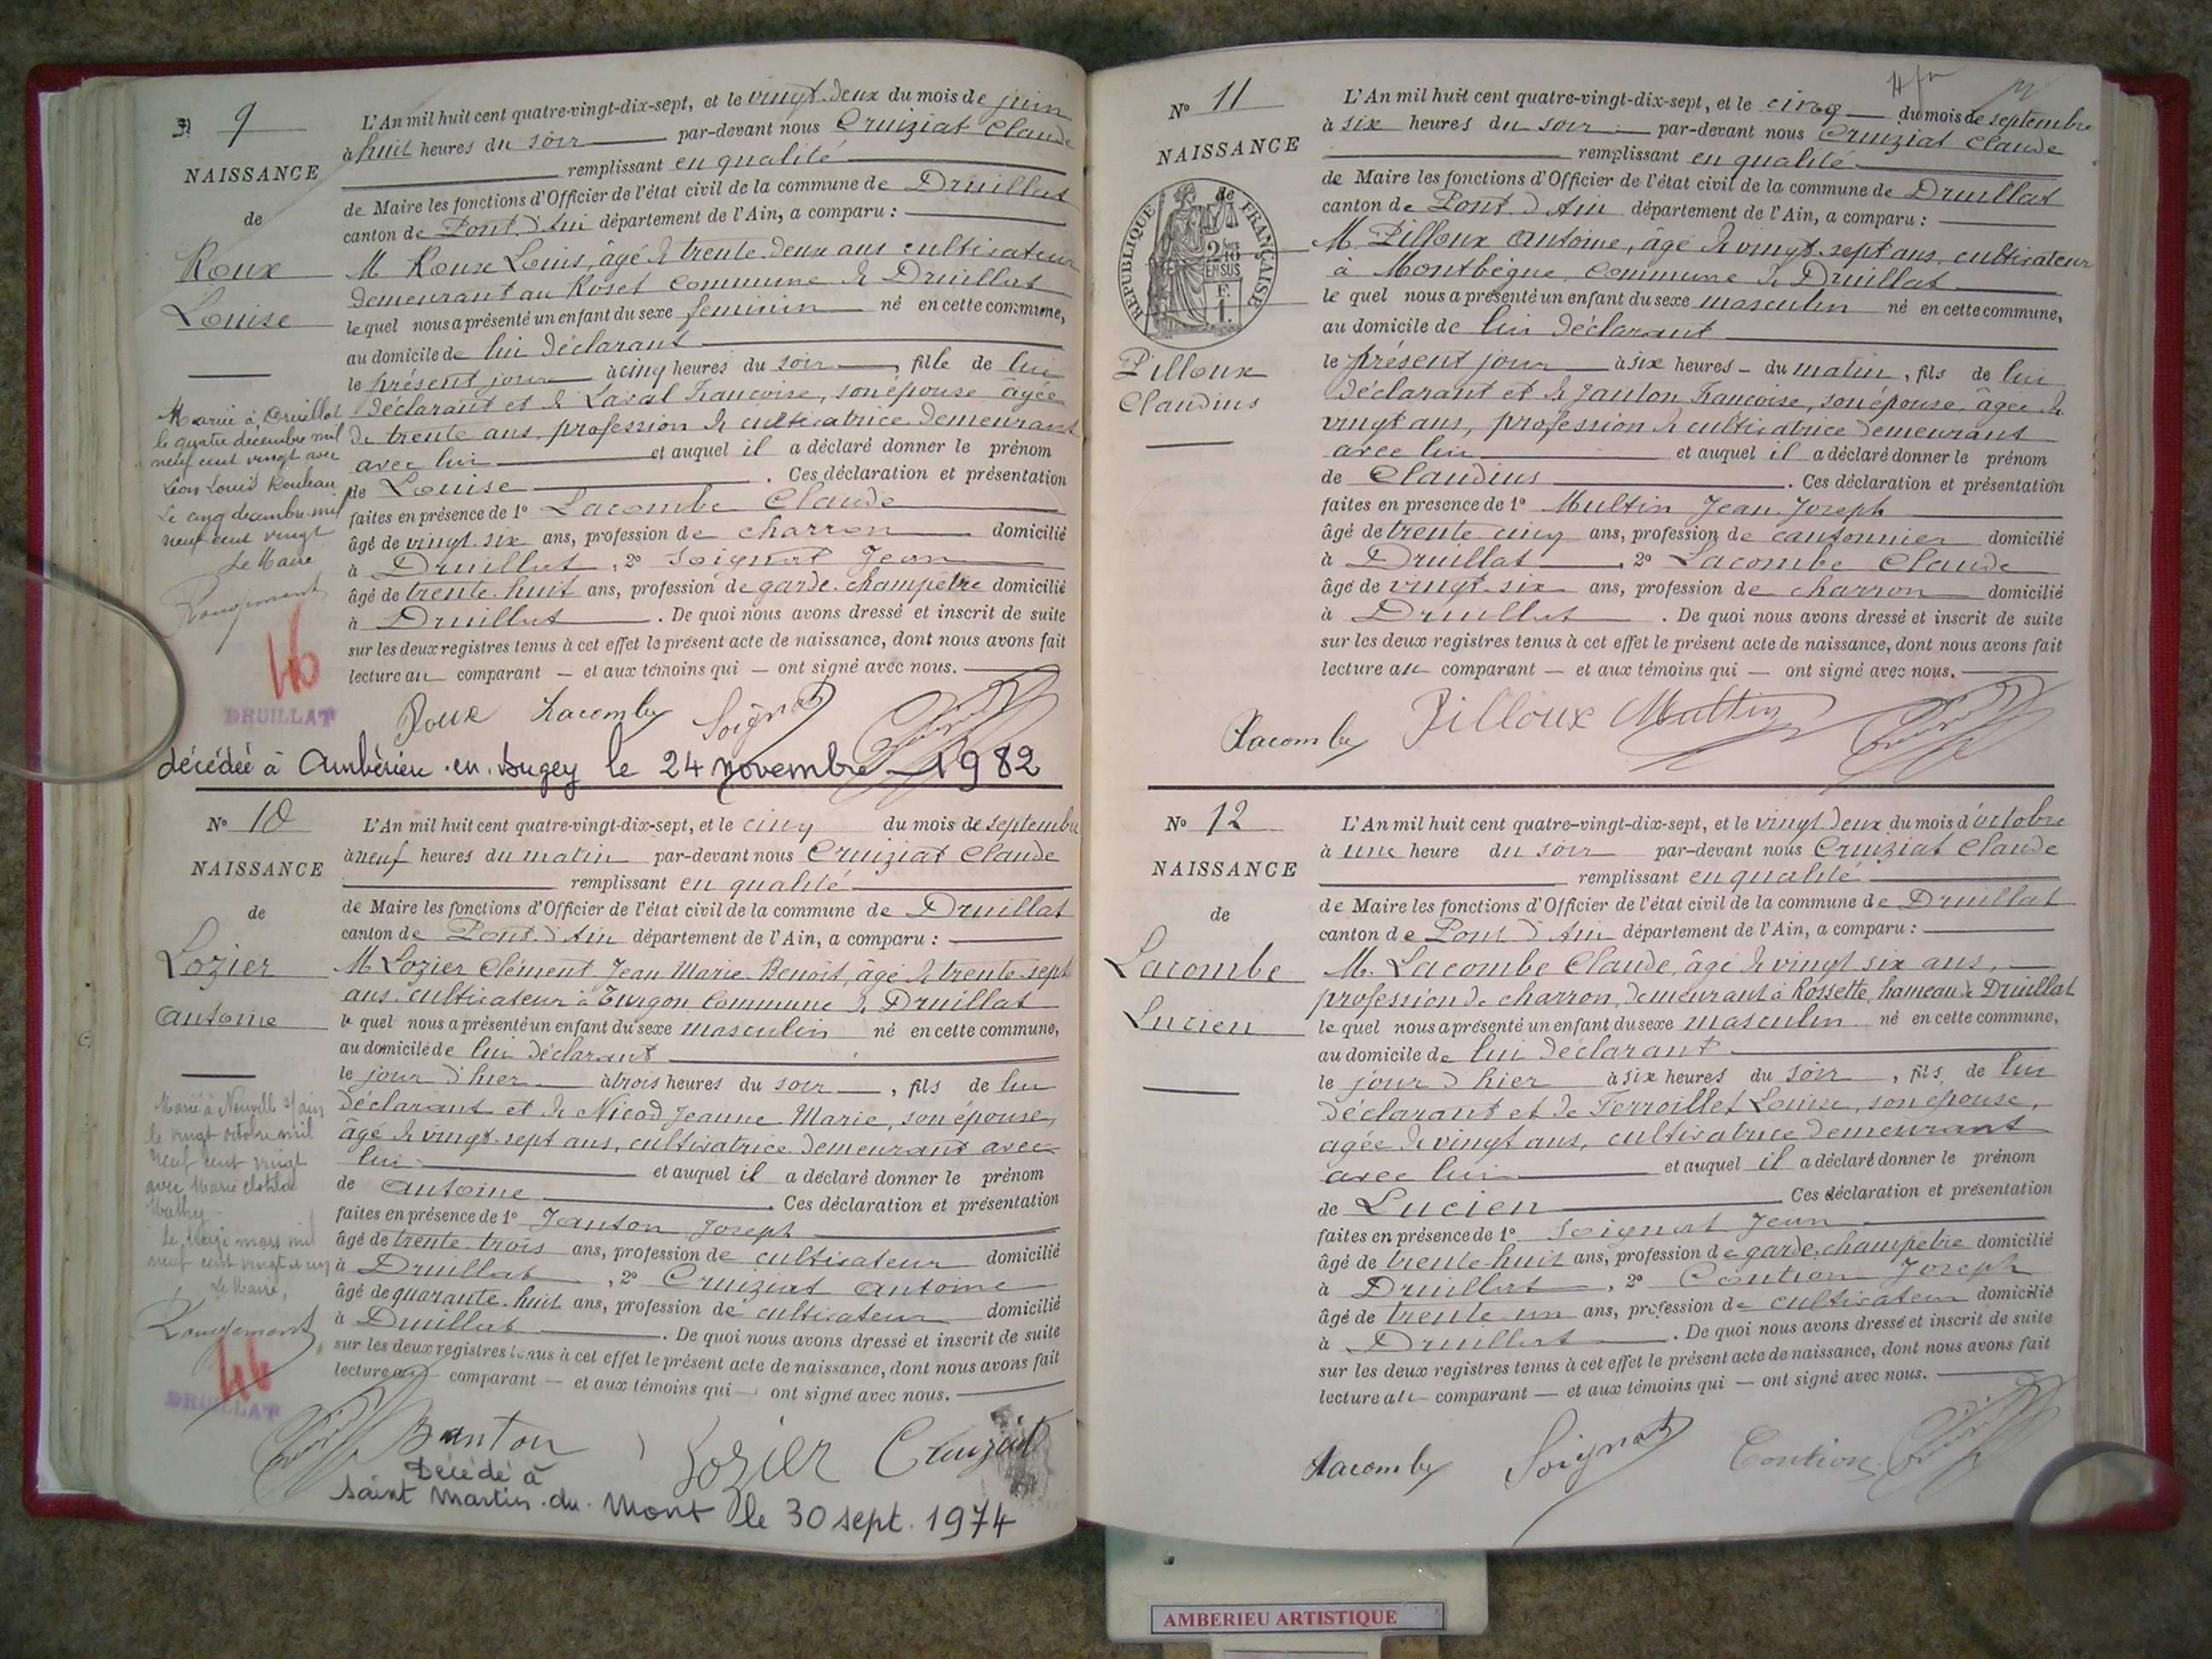 N° 9
NAISSANCE
de
Roux
Louise
L'An mil huit cent quatre-vingt-dix-sept, et le vingt-deux du mois de juin
à huit heures du soir par-devant nous Cruiziat Claude
remplissant en qualité
de Maire les fonctions d'Officier de l'état civil de la commune de Druillat
canton de Pont d'Ain département de l'Ain, a comparu :
M Roux Louis, âgé de trente-deux ans cultivateur
demeurant au Roset commune de Druillat
lequel nous a présenté un enfant du sexe feminin né en cette commune,
au domicile de lui déclarant
le présent jour à cinq heures du soir, fille de lui
déclarant et de Laval Francoise, son épouse âgée
de trente ans, profession de cultivatrice demeurant
avec lui et auquel il a déclaré donner le prénom
de Louise. Ces déclaration et présentation
faites en présence de 1° Lacombe Claude
âgé de vingt-six ans, profession de charron domicilié
à Druillat, 2° Soignat Jean
âgé de trente-huit ans, profession de garde-champêtre domicilié
à Druillat. De quoi nous avons dressé et inscrit de suite
sur les deux registres tenus à cet effet le présent acte de naissance, dont nous avons fait
lecture au comparant — et aux témoins qui — ont signé avec nous.
Mariée à Druillat
le quatre décembre mil
neuf cent vingt avec
Léon Louis
Le cinq décembre mil
neuf cent vingt
Le Maire
Rougemont
46
DRUILLAT
Roux Lacombe Soignat
décédée à Ambérieu-en-Bugey le 24 novembre 1982
N° 10
NAISSANCE
de
Lozier
Antoine
L'An mil huit cent quatre-vingt-dix-sept, et le cinq du mois de septembre
à neuf heures du matin par-devant nous Cruiziat Claude
remplissant en qualité
de Maire les fonctions d'Officier de l'état civil de la commune de Druillat
canton de Pont d'Ain département de l'Ain, a comparu :
M Lozier Clément Jean Marie Benoit, âgé de trente-sept
ans cultivateur à Turgon commune de Druillat
le quel nous a présenté un enfant du sexe masculin né en cette commune,
au domicile de lui déclarant
le jour d'hier à trois heures du soir, fils de lui
déclarant et de Nicod Jeanne Marie, son épouse,
âgé de vingt-sept ans, cultivatrice demeurant avec
lui et auquel il a déclaré donner le prénom
de Antoine. Ces déclaration et présentation
faites en présence de 1° Janton Joseph
âgé de trente-trois ans, profession de cultivateur domicilié
à Druillat, 2° Cruiziat Antoine
âgé de quarante-huit ans, profession de cultivateur domicilié
à Druillat. De quoi nous avons dressé et inscrit de suite
sur les deux registres tenus à cet effet le présent acte de naissance, dont nous avons fait
lecture au comparant — et aux témoins qui — ont signé avec nous.
Marié à Neuville s/ain
le vingt octobre mil
neuf cent vingt
avec Marie Clotilde
Mathy
Le treize mars mil
neuf cent vingt et un
Le Maire,
Rougemont
46
DRUILLAT
Janton Lozier Cruiziat
Décédé à
Saint Martin-du-Mont le 30 sept. 1974
N° 11
NAISSANCE
de
RÉPUBLIQUE FRANÇAISE
2/10
EN SUS
Pilloux
Claudius
L'An mil huit cent quatre-vingt-dix-sept, et le cinq du mois de septembre
à six heures du soir par-devant nous Cruiziat Claude
remplissant en qualité
de Maire les fonctions d'Officier de l'état civil de la commune de Druillat
canton de Pont d'Ain département de l'Ain, a comparu :
M. Pilloux Antoine, âgé de vingt-sept ans, cultivateur
à Montbègue, commune de Druillat
le quel nous a présenté un enfant du sexe masculin né en cette commune,
au domicile de lui déclarant
le présent jour à six heures du matin, fils de lui
déclarant et de Janton Francoise, son épouse, âgée de
vingt ans, profession de cultivatrice demeurant
avec lui et auquel il a déclaré donner le prénom
de Claudius. Ces déclaration et présentation
faites en presence de 1° Multin Jean Joseph
âgé de trente cinq ans, profession de cantonnier domicilié
à Druillat, 2° Lacombe Claude
âgé de vingt-six ans, profession de charron domicilié
à Druillat. De quoi nous avons dressé et inscrit de suite
sur les deux registres tenus à cet effet le présent acte de naissance, dont nous avons fait
lecture au comparant — et aux témoins qui — ont signé avec nous.
Lacombe Pilloux Multin
N° 12
NAISSANCE
de
Lacombe
Lucien
L'An mil huit cent quatre-vingt-dix-sept, et le vingt deux du mois d'octobre
à une heure du soir par-devant nous Cruiziat Claude
remplissant en qualité
de Maire les fonctions d'Officier de l'état civil de la commune de Druillat
canton de Pont d'Ain département de l'Ain, a comparu :
M. Lacombe Claude, âgé de vingt six ans,
profession de charron, demeurant à Rossette, hameau de Druillat
le quel nous a présenté un enfant du sexe masculin né en cette commune,
au domicile de lui déclarant
le jour d'hier à six heures du soir, fils de lui
déclarant et de Perroillet Louise, son épouse,
agée de vingt ans, cultivatrice demeurant
avec lui et auquel il a déclaré donner le prénom
de Lucien. Ces déclaration et présentation
faites en présence de 1° Soignat Jean
âgé de trente-huit ans, profession de garde-champêtre domicilié
à Druillat, 2° Contion Joseph
âgé de trente un ans, profession de cultivateur domicilié
à Druillat. De quoi nous avons dressé et inscrit de suite
sur les deux registres tenus à cet effet le présent acte de naissance, dont nous avons fait
lecture au comparant — et aux témoins qui — ont signé avec nous.
Lacombe Soignat Contion
AMBERIEU ARTISTIQUE